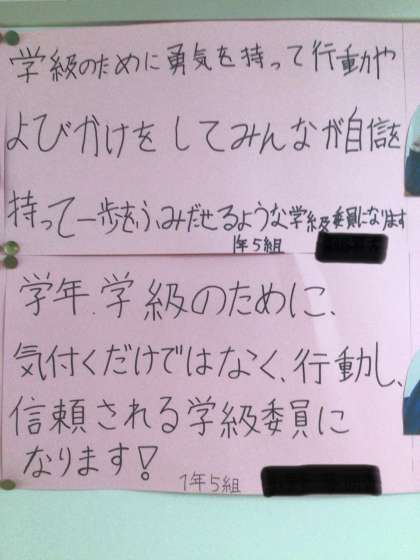 学級のために勇気を持って行動や
よびかけをしてみんなが自信を
持って一歩をふみだせるような学級委員になります
1年5組
学年、学級のために、
気付くだけではなく、行動し、
信頼される学級委員に
なります!
1年5組